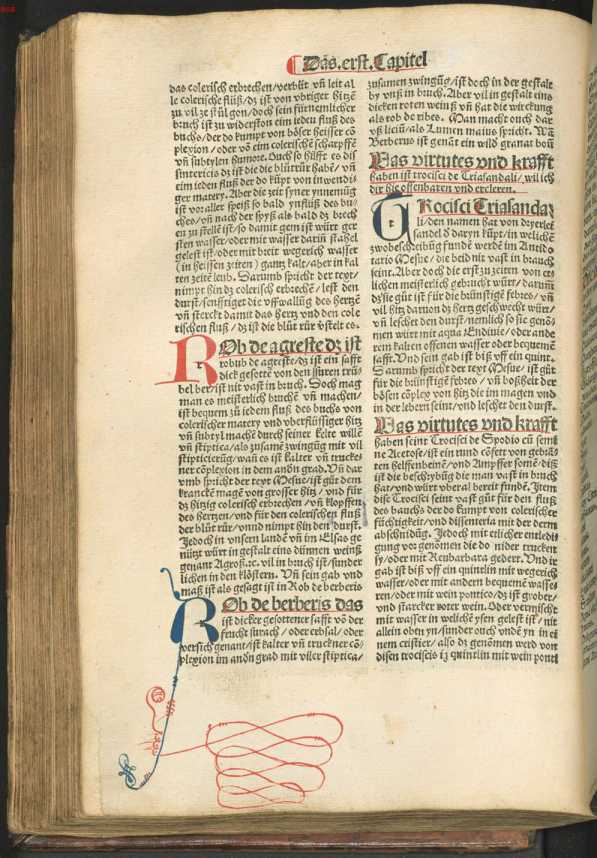 Das.erst.Capitel
das colerisch erbrechen/verbüt vñ leit al
le colerische flüß/dz ist von vbriger hitzē
zu vil ze stůlgon/doch sein fürnemlicher
bruch ist zů widerston eim ieden fluß des
buchs/der do kumpt von böser heisser cō
plexion/oder võ eim colerischē scharpffē
vñ subtylen humore. Auch so hilfft es dis
sintericis dz ist die die blůtrůr habē/vñ
eim ieden fluß der do kūpt von inwendi
ger matery. Aber die zeit syner ynnemūg
ist vor aller speiß so bald yn fluß des bu
ches/vñ nach der spyß als bald dz brech
en zů stelle ist/so damit gem ist würt ger
sten wasser/oder mit wasser darin stahel
gelest ist/oder mit breit wegerich wasser
(in heissen zeiten) gantz kalt/aber in kal
ten zeitē leub. Darumb spricht der text
nimpt hin dz colerisch erbrechē/lest den
durst/senfftiget die vffwallūg des hertzē
vñ sterckt damit das hertz vnd den cole
rischen fluß/dz ist die blůt růr vstelt es.
ROb de agreste dz ist
robub de agreste/dz ist ein safft
dick gesottē von den suren trů
bel ber/ist nit vast in bruch. Doch mag
man es meisterlich bruchē vñ machen/
ist bequem zů iedem fluß des buchs von
colerischer matery vnd vberflüssiger hitz
vñ subtyl machē durch seiner kelte willē
vñ stiptica/als zusamē zwingūg mit vil
stipticierūg/wañ es ist kalter vñ trucke
ner cōplexion in dem andn grad. Vñ dar
vmb spricht der text Mesue/ist gůt dem
kranckē magē von grosser hitz/vnd für
dz hitzig colerisch erbrechē/vñ klopffen
des hertzen/vnd für den colerischen fluß
der blůt růr/vnnd nimpt hin den durst.
Jedoch in vnsern landen vñ im Elsas ge
nützt würt in gestalt eins dünnen weinß
genant Agrest.rc. vil in bruch ist/sunder
lichen in den klöstern. Vñ sein gab vnd
maß ist als gesagt ist in Rob de berberis
ROb de berberis das
ist dicker gesottener safft vō der
frucht surach/oder erbsal/oder
versich genant/ist kalter vñ truckner cō
plexion im andn grad mit viler stiptica/
zusamen zwingūg/ist doch in der gestalt
by vnß in bruch. Aber vil in gestalt eins
dicken roten weinß vñ hat die wirckung
als rob de ribes. Man macht ouch dar
vß liciū/als Lumen maius spricht. Wā
Berberus ist genāt ein wild granat boū
Das virtutes vnd krafft
haben ist trocisci de Triasandali/wil ich
dir hie offenbaren vnd erckleren.
TRocisci Triasanda
li/den namen hat von dryerlei
sandel d daryn kūpt/in welichē
zwo beschreibūg fundē werdē im Antido
tario Mesue/die beid nit vast in bruch
seint. Aber doch die erst zů zeiten von et
lichen meisterlich gebrucht würt/darum
dz sie gůt ist für die brünstigē febres/vñ
vil hitz darnon dz hertz geschwecht würt/
vñ leschet den durst/nemlich so sie genō
men würt mit aqua Endiuie/oder ande
rem kalten offenen wasser oder bequemē
safft. Vnd sein gab ist biß vff ein quint.
Darumb spricht der text Mesue/ist gůt
für die brünstigē febres/vñ boßheit der
bösen cōplex von hitz die im magen vnd
in der lebern seint/vnd leschet den durst.
Das virtutes vnd krafft
haben seint Trocisci de Spodio cū semi
ne Acetose/ist ein rund cōfett von gebrā
ten helffenbeinē/vnd Ampffer somē/diß
ist die beschrybūg die man vast in bruch
hat/vnd würt vberal bereit fundē. Item
dise Trocisci seint vast gůt für den fluß
des bauchs der do kumpt von colerischer
füchtigkeit/vnd dissenteria mit der derm
abschnidūg. Jedoch mit etlicher entledi
gung vor genōmen die do nider truckent
sy/oder mit Reubarbara gedert. Vnd ir
gab ist biß vff ein quintlin mit wegerich
wasser/oder mit andern bequemē wasse
ren/oder mit wein pontico/dz ist grober/
vnd starcker roter wein. Oder vermischt
mit wasser in welichē ysen gelest ist/nit
allein oben yn/sunder ouch vndē yn in ei
nem cristier/also dz genōmen werd von
disen trociscis ij quintlin mit wein ponti